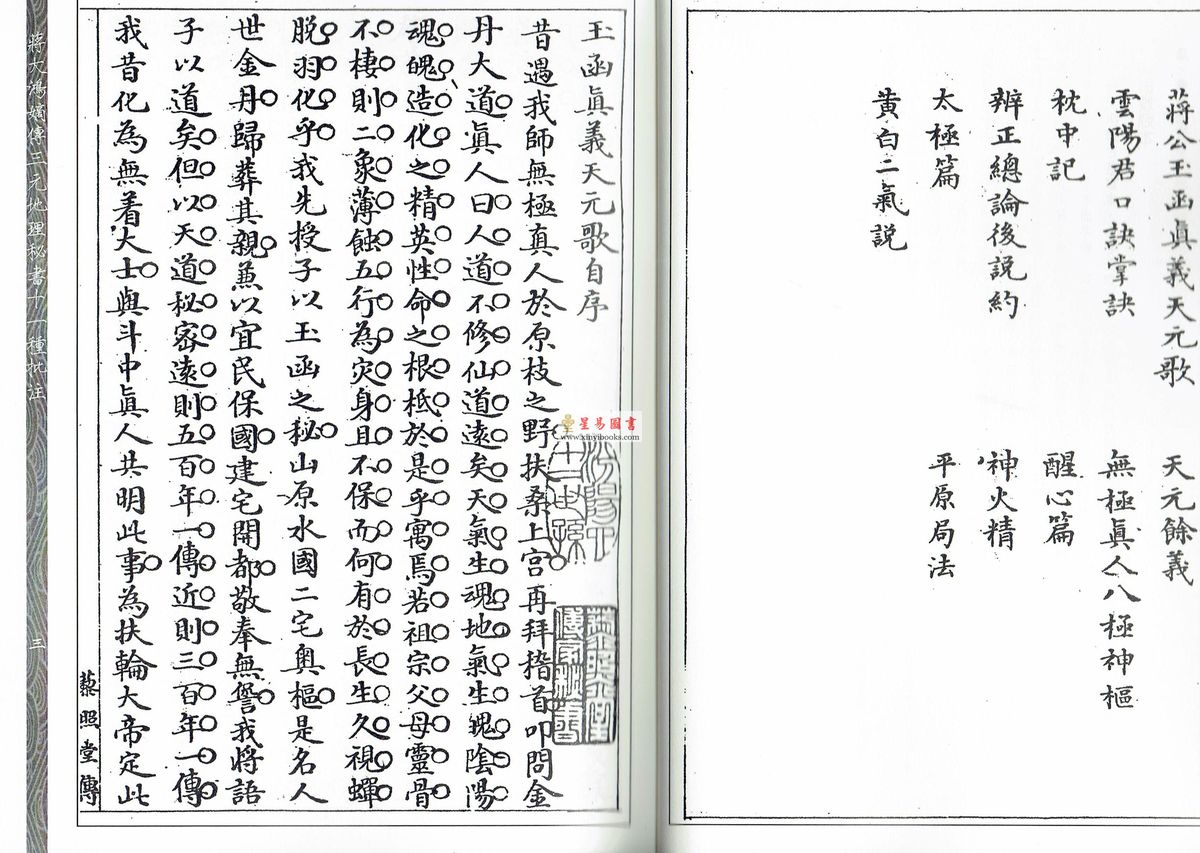 蔣公玉函眞義天元歌 天元餘義
雲陽君口訣掌訣 無極眞人八極神樞
枕中記 醒心篇
辨正總論後説約 神火精
太極篇 平原局法
黃白二氣説
玉函眞義天元歌自序
昔遇我師無極真人於原枝之野扶桑上宮再拜稽首叩問金
丹大道眞人曰人道不修仙道遠矣天氣生魂地氣生魄陰陽
魂魄造化之精英性命之根柢於是乎寓焉若祖宗父母靈骨
不棲則二象薄蝕五行為灾身且不保而何有於長生久視蟬
脱羽化乎我先授子以玉函之秘山原水國二宅奧樞是名人
世金丹歸葬其親兼以宜民保國建宅開都敬奉無諐我將語
子以道矣但以天道秘密遠則五百年一傳近則三百年一傳
我昔化為無着大士與斗中眞人共明此事為扶輪大帝定此
藜照堂傳
蔣大鴻嫡傳三元地理秘書十一種批注
三
星易圖書
www.xinyibooks.com